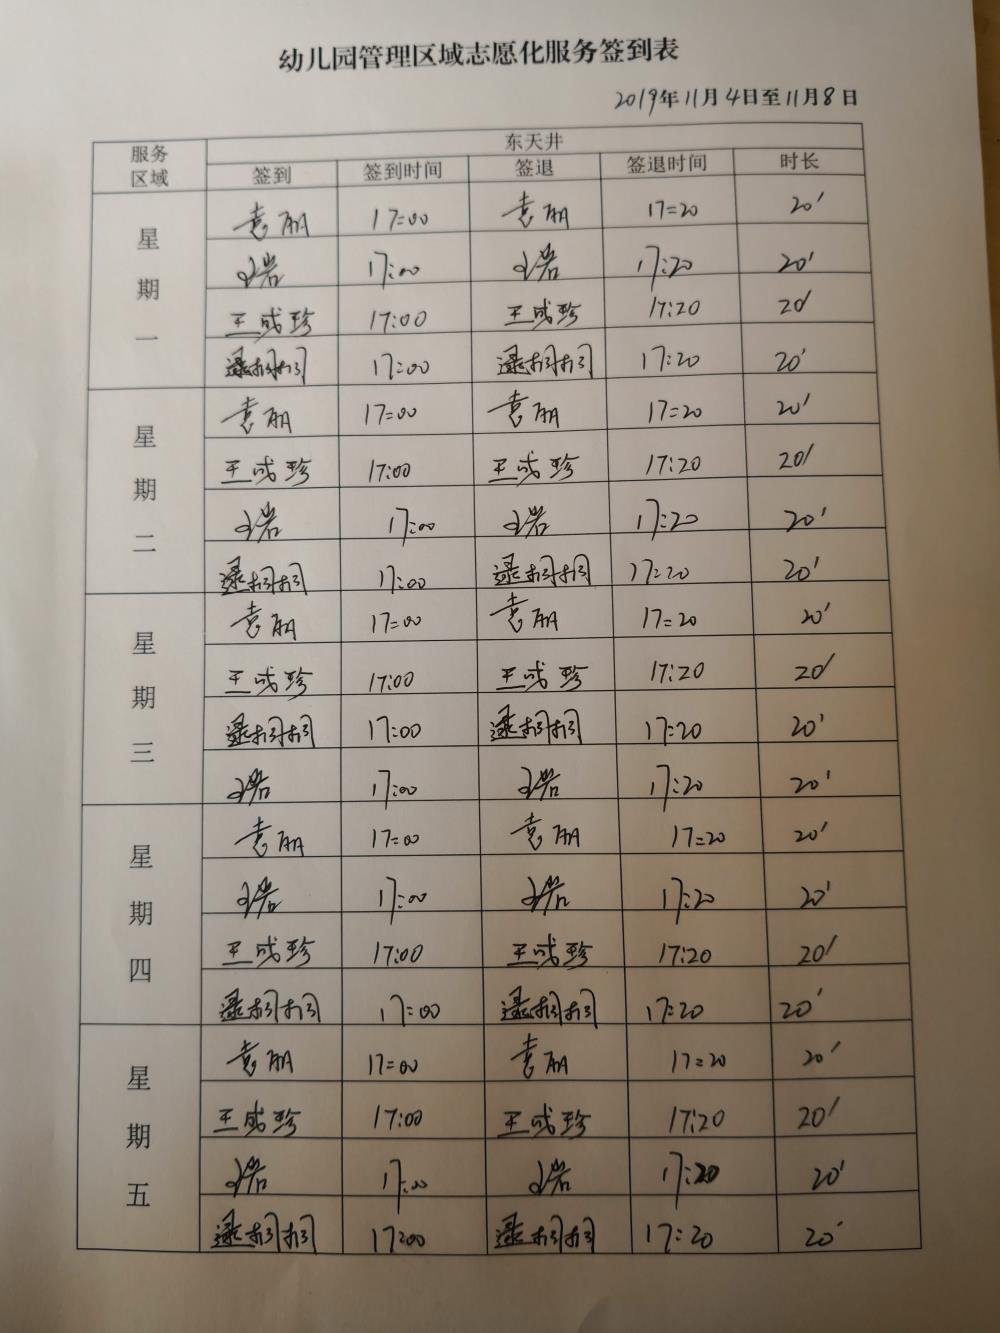 幼儿园管理区域志愿化服务签到表
2019年11月4日至11月8日
服务区域 东天井
签到 签到时间 签退 签退时间 时长
星期一
袁丽 17:00 袁丽 17:20 20'
17:00 17:20 20'
王成珍 17:00 王成珍 17:20 20'
17:00 17:20 20'
星期二
袁丽 17:00 袁丽 17:20 20'
王成珍 17:00 王成珍 17:20 20'
17:00 17:20 20'
17:00 17:20 20'
星期三
袁丽 17:00 袁丽 17:20 20'
王成珍 17:00 王成珍 17:20 20'
17:00 17:20 20'
17:00 17:20 20'
星期四
袁丽 17:00 袁丽 17:20 20'
17:00 17:20 20'
王成珍 17:00 王成珍 17:20 20'
17:00 17:20 20'
星期五
袁丽 17:00 袁丽 17:20 20'
王成珍 17:00 王成珍 17:20 20'
17:00 17:20 20'
17:00 17:20 20'